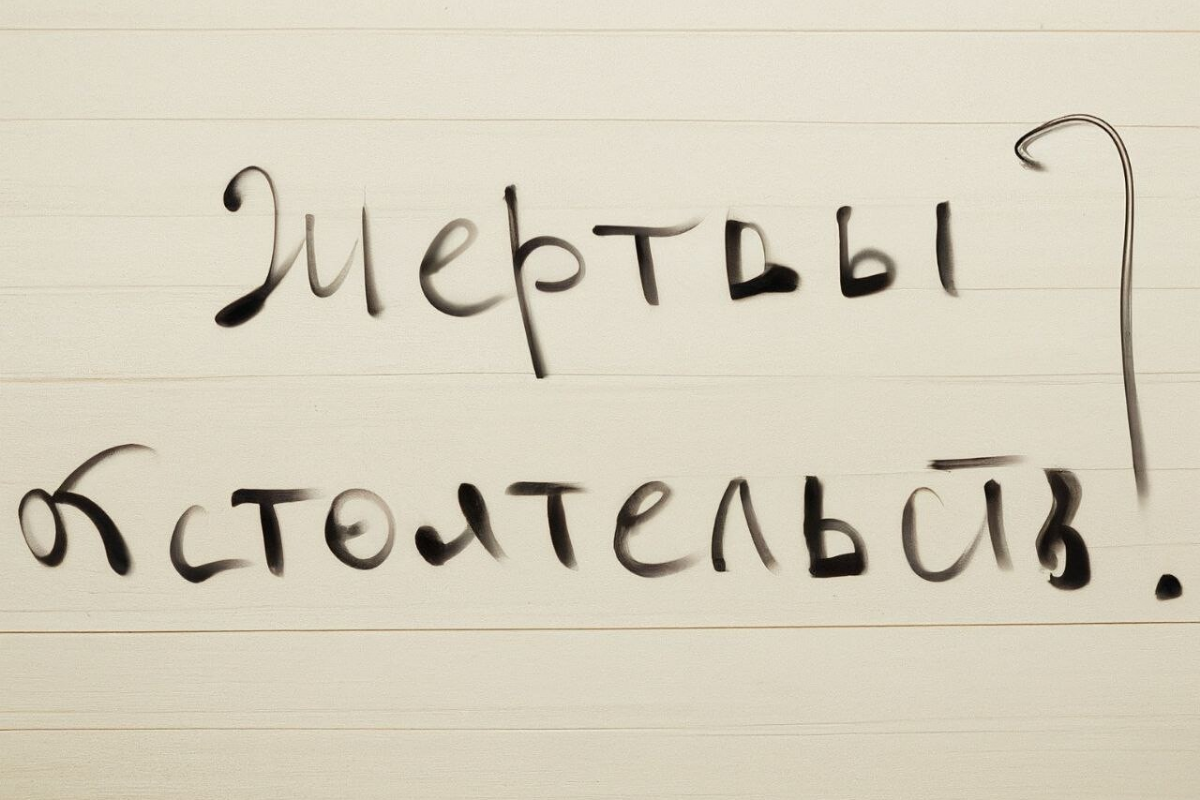 Жертвы
обстоятельств?